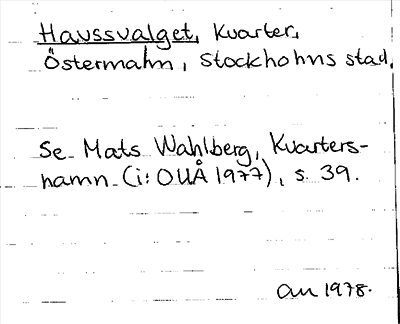 Havssvalget, Kvarter,
Östermalm, Stockholms stad.
Se Mats Wahlberg, Kvarters-
namn (i: OUÅ 1977), s 39.
au 1978.